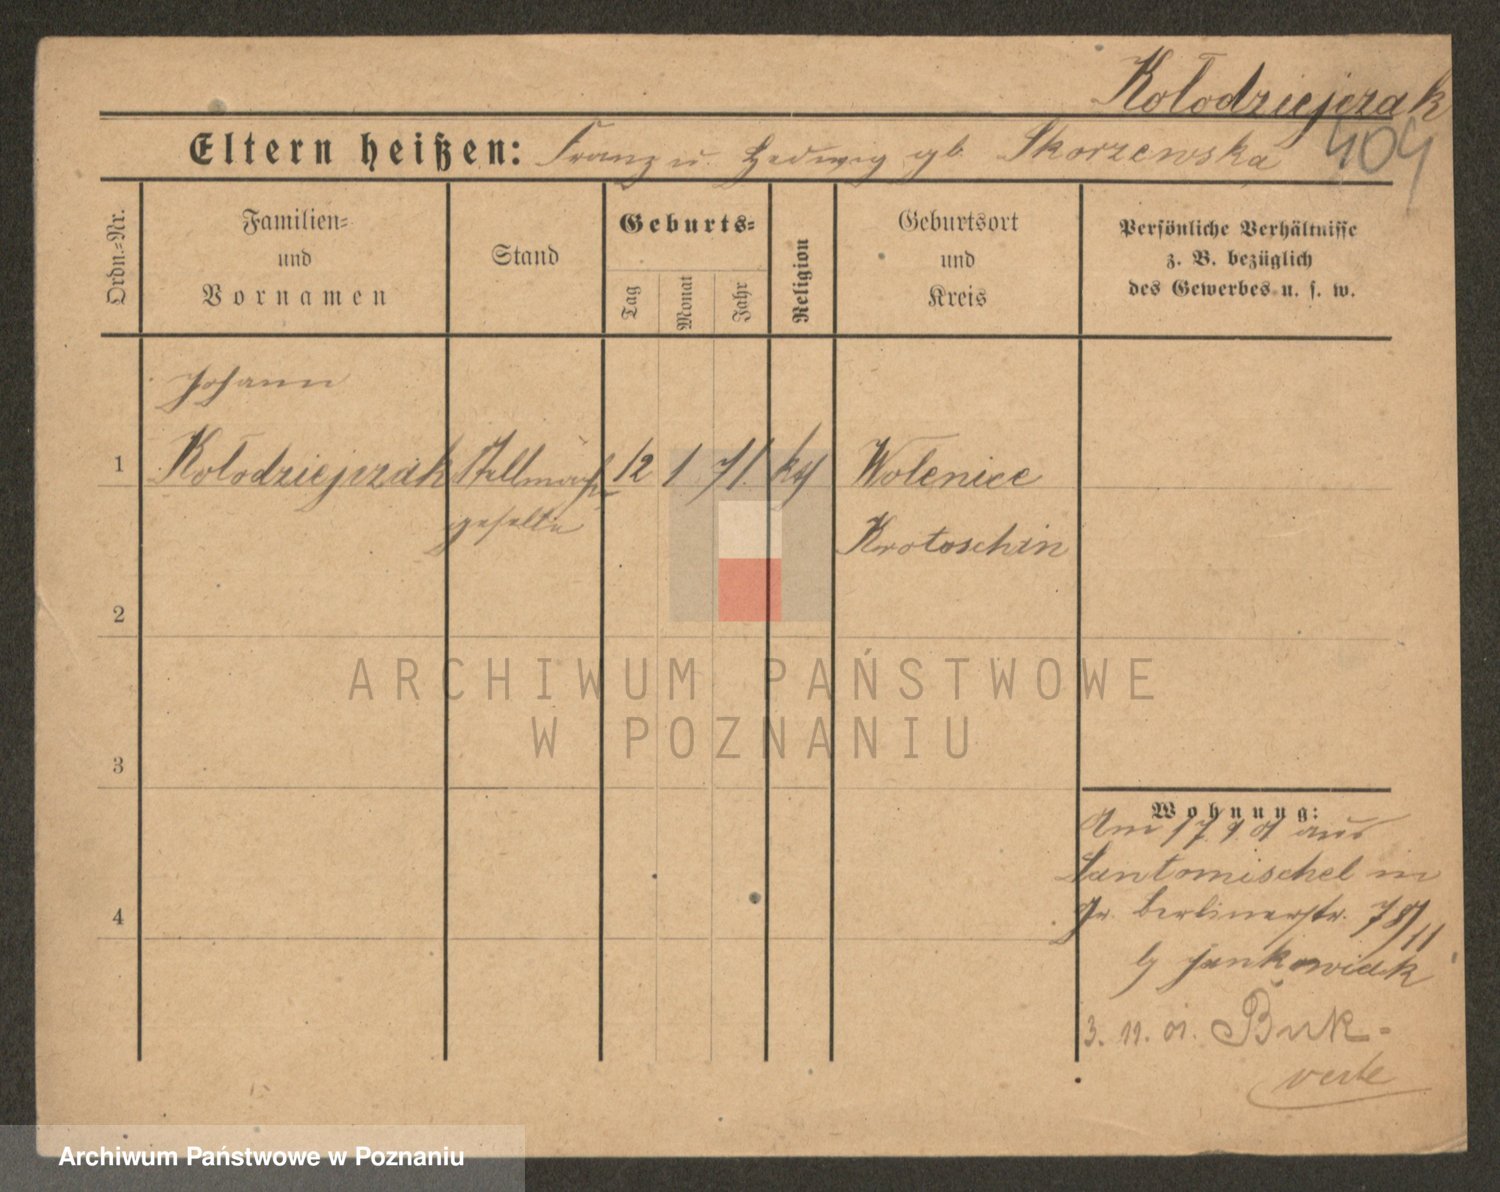 Kołodziejczak
Eltern heißen: Franz u. Hedwig gb. Skorzewska
409
Ordn.=Nr.
Familien=
und
Vornamen
Stand
Geburts=
Tag
Monat
Jahr
Religion
Geburtsort
und
Kreis
Persönliche Verhältnisse
z. B. bezüglich
des Gewerbes u. s. w.
Johann
1 Kołodziejczak Stellmach- 12 1 71. kth Wolenice
geselle Krotoschin
2
ARCHIWUM PAŃSTWOWE
W POZNANIU
3
Wohnung:
Am 17 9 01 aus
Santomischel in
Gr. Berlinerstr. 78/II
b Jankowiak
4
3. 11. 01. Buk-
verte
Archiwum Państwowe w Poznaniu